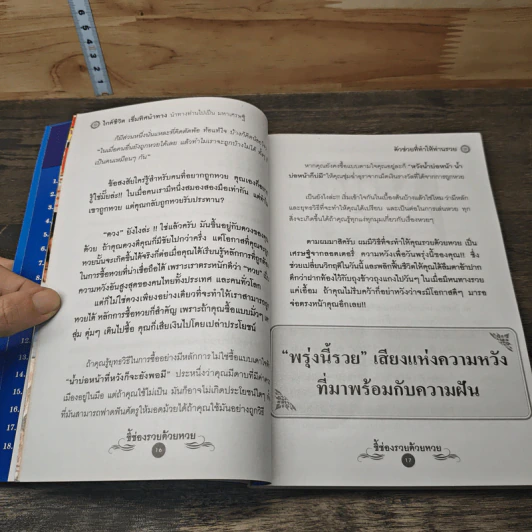 ไกด์ชีวิต เข็มทิศนำทาง นำทางท่านไปเป็น มหาเศรษฐี
ก็มีส่วนหนึ่งนั่นแหละที่คิดตัดพ้อ ท้อแท้ใจ
"ในเมื่อคนอื่นยังถูกหวยได้เลย แล้วทำไมเราจะถูกบ้างไม่ได้
เป็นคนเหมือนๆ กัน"
ข้อสงสัยใครรู้สำหรับคนที่อยากถูกหวย
รู้ใช่มั๊ยล่ะ!! ในเมื่อคนเรามีหนึ่งสมองสองมือเท่ากัน
เขาถูกหวย แต่คุณกลับถูกหวยรับประทาน?
"ดวง" ยังไงล่ะ !! ใช่แล้วครับ มันขึ้นอยู่กับดวงของ
ด้วย ถ้าคุณดวงดีคุณก็มีชัยไปกว่าครึ่ง แต่โอกาสที่คุณจะถูก
หวยมันจะเกิดขึ้นได้จริงก็ต่อเมื่อคุณได้เรียนรู้หลักการที่ถูกต้อง
ในการซื้อหวยที่น่าเชื่อถือได้ เพราะเราตระหนักดีว่า "หวย"
ความหวังอันสูงสุดของคนไทยทั้งประเทศ และคนทั่วโลก
แต่ก็ไม่ใช่ดวงเพียงอย่างเดียวที่จะทำให้เราสามารถถูก
หวยได้ หลักการซื้อหวยก็สำคัญ เพราะถ้าคุณซื้อแบบมั่วๆ
สุ่ม ดุ่มๆ เดินไปซื้อ คุณก็เสียเงินไปโดยเปล่าประโยชน์
ถ้าคุณรู้ยุทธวิธีในการซื้ออย่างมีหลักการไม่ใช่ซื้อแบบเดาใจ
"น้ำบ่อหน้าที่หวังก็จะยังพอมี" ประหนึ่งว่าคุณมีดาบที่มีค่า
เมืองอยู่ในมือ แต่ถ้าคุณใช้ไม่เป็น มันก็อาจไม่เกิดประโยชน์ใดๆ
ที่มันสามารถฟาดฟันศัตรูให้มอดม้วยได้ถ้าคุณใช้มันอย่างถูกวิธี
ชี้ช่องรวยด้วยหวย
16
ตัวช่วยที่ทำให้ท่านรวย
หากคุณยังคงซื้อแบบตามใจคุณอยู่ละก็ "หวังน้ำบ่อหน้า น้ำ
บ่อหน้าก็ไม่มี"
ยังไงล่ะ!! เริ่มเข้าใจกันในเบื้องต้นบ้างแล้วใช่ไหม ว่ามีหลัก
และยุทธวิธีที่จะทำให้คุณได้เปรียบ และเป็นต่อในการเล่นหวย ทุก
สิ่งจะเกิดขึ้นได้ถ้าคุณรู้ทุกแง่ทุกมุมเกี่ยวกับเรื่องหวยๆ
ตามผมมาสิครับ ผมมีวิธีที่จะทำให้คุณรวยด้วยหวย เป็น
เศรษฐีจากลอตเตอรี่ ความหวังเพื่อวันพรุ่งนี้ของคุณ!! ซึ่ง
ช่วยเปลี่ยนวิกฤตในวันนี้ และพลิกฟื้นชีวิตให้คุณได้ลืมตาอ้าปาก
ดีกว่าฝากท้องไว้กับถุงข้าวถุงแกงไปวันๆ ในเมื่อมีหนทางรวย
แค่เอื้อม ถ้าคุณไม่รีบคว้าก็อย่าหวังว่าจะมีโอกาสดีๆ มารอ
จ่อตรงหน้าคุณอีกเลย!!
"พรุ่งนี้รวย" เสียงแห่งความหวัง
ที่มาพร้อมกับความฝัน
ชี้ช่องรวยด้วยหวย
17